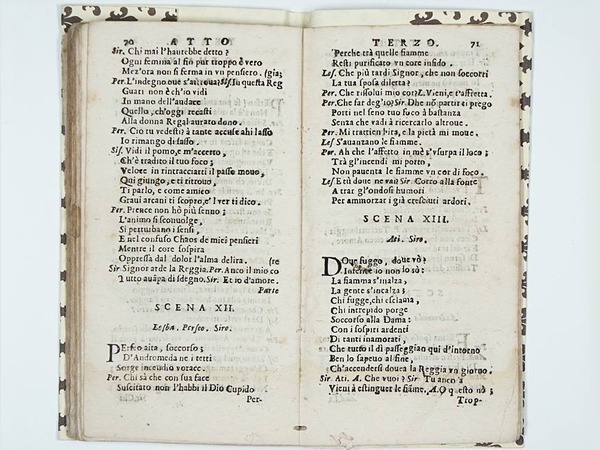 70 ATTO
Sir. Chi mai l'haurebbe detto?
Ogni femina al fin pur troppo è vero
Mez'ora non si ferma in vn pensiero. (gia;
Per. L'indegno oue s'aritroua? Sis. In questa Reg
Guari non è ch'io vidi
In mano dell'audace
Quello, ch'oggi recasti
Alla donna Regal aurato dono.
Per. Ciò tu vedesti? à tante accuse ahi lasso
Io rimango di sasso.
Sis. Vidi il pomo, e m'accerto,
Ch'è tradito il tuo foco;
Veloce in rintracciarti il passo mouo,
Qui giungo, e ti ritrouo,
Ti parlo, e come amico
Graui arcani ti scopro, e'l ver ti dico.
Per. Prence non hò più senno;
L'animo si sconuolge,
Si perturbano i sensi,
E nel confuso Chaos de miei pensieri
Mentre il core sospira
Oppressa dal dolor l'alma delira. (re
Sir Signor arde la Reggia. Per. Anco il mio co
Tutto auãpa di sdegno. Sir. Et io d'amore.
Parte
SCENA XII.
Lesba. Perseo. Siro.
PErseo aita, soccorso;
D'Andromeda ne i tetti
Sorge incendio vorace.
Per. Chi sà che con sua face
Suscitato non l'habbi il Dio Cupido
Per-
TERZO. 71
Perche trà quelle fiamme
Resti purificato vn core infido.
Les. Che più tardi Signor, che non soccorri
La tua sposa diletta?
Per. Che risolui mio cor? L. Vieni, e t'affretta.
Per. Che far deg'io? Sir. Dhe nõ partir ti prego
Porti nel seno tuo foco à bastanza
Senza che vadi à ricercarlo altroue.
Per. Mi trattien l'ira, e la pietà mi moue.
Les S'auanzano le fiamme.
Per. Ah che l'affetto in mè s'vsurpa il loco;
Trà gl'incendi mi porto,
Non pauenta le fiamme vn cor di foco.
Les E tù doue ne vai? Sir Corro alla fonte
A trar gl'ondosi humori
Per ammorzar i già cresciuti ardori.
SCENA XIII.
Ati. Siro.
DOue fuggo, doue vò?
Infelice io non lo sò:
La fiamma s'inalza,
La gente s'incalza;
Chi fugge, chi esclama,
Chi intrepido porge
Soccorso alla Dama:
Con i sospiri ardenti
Di tanti inamorati,
Che tutto il dì passeggian qui d'intorno
Ben lo sapeuo al fine,
Ch'accendersi douea la Reggia vn giorno.
Sir. Ati. A. Che vuoi? Sir Tu anco'a
Vieni à estinguer le fiãme. A. O questo nò;
Trop-